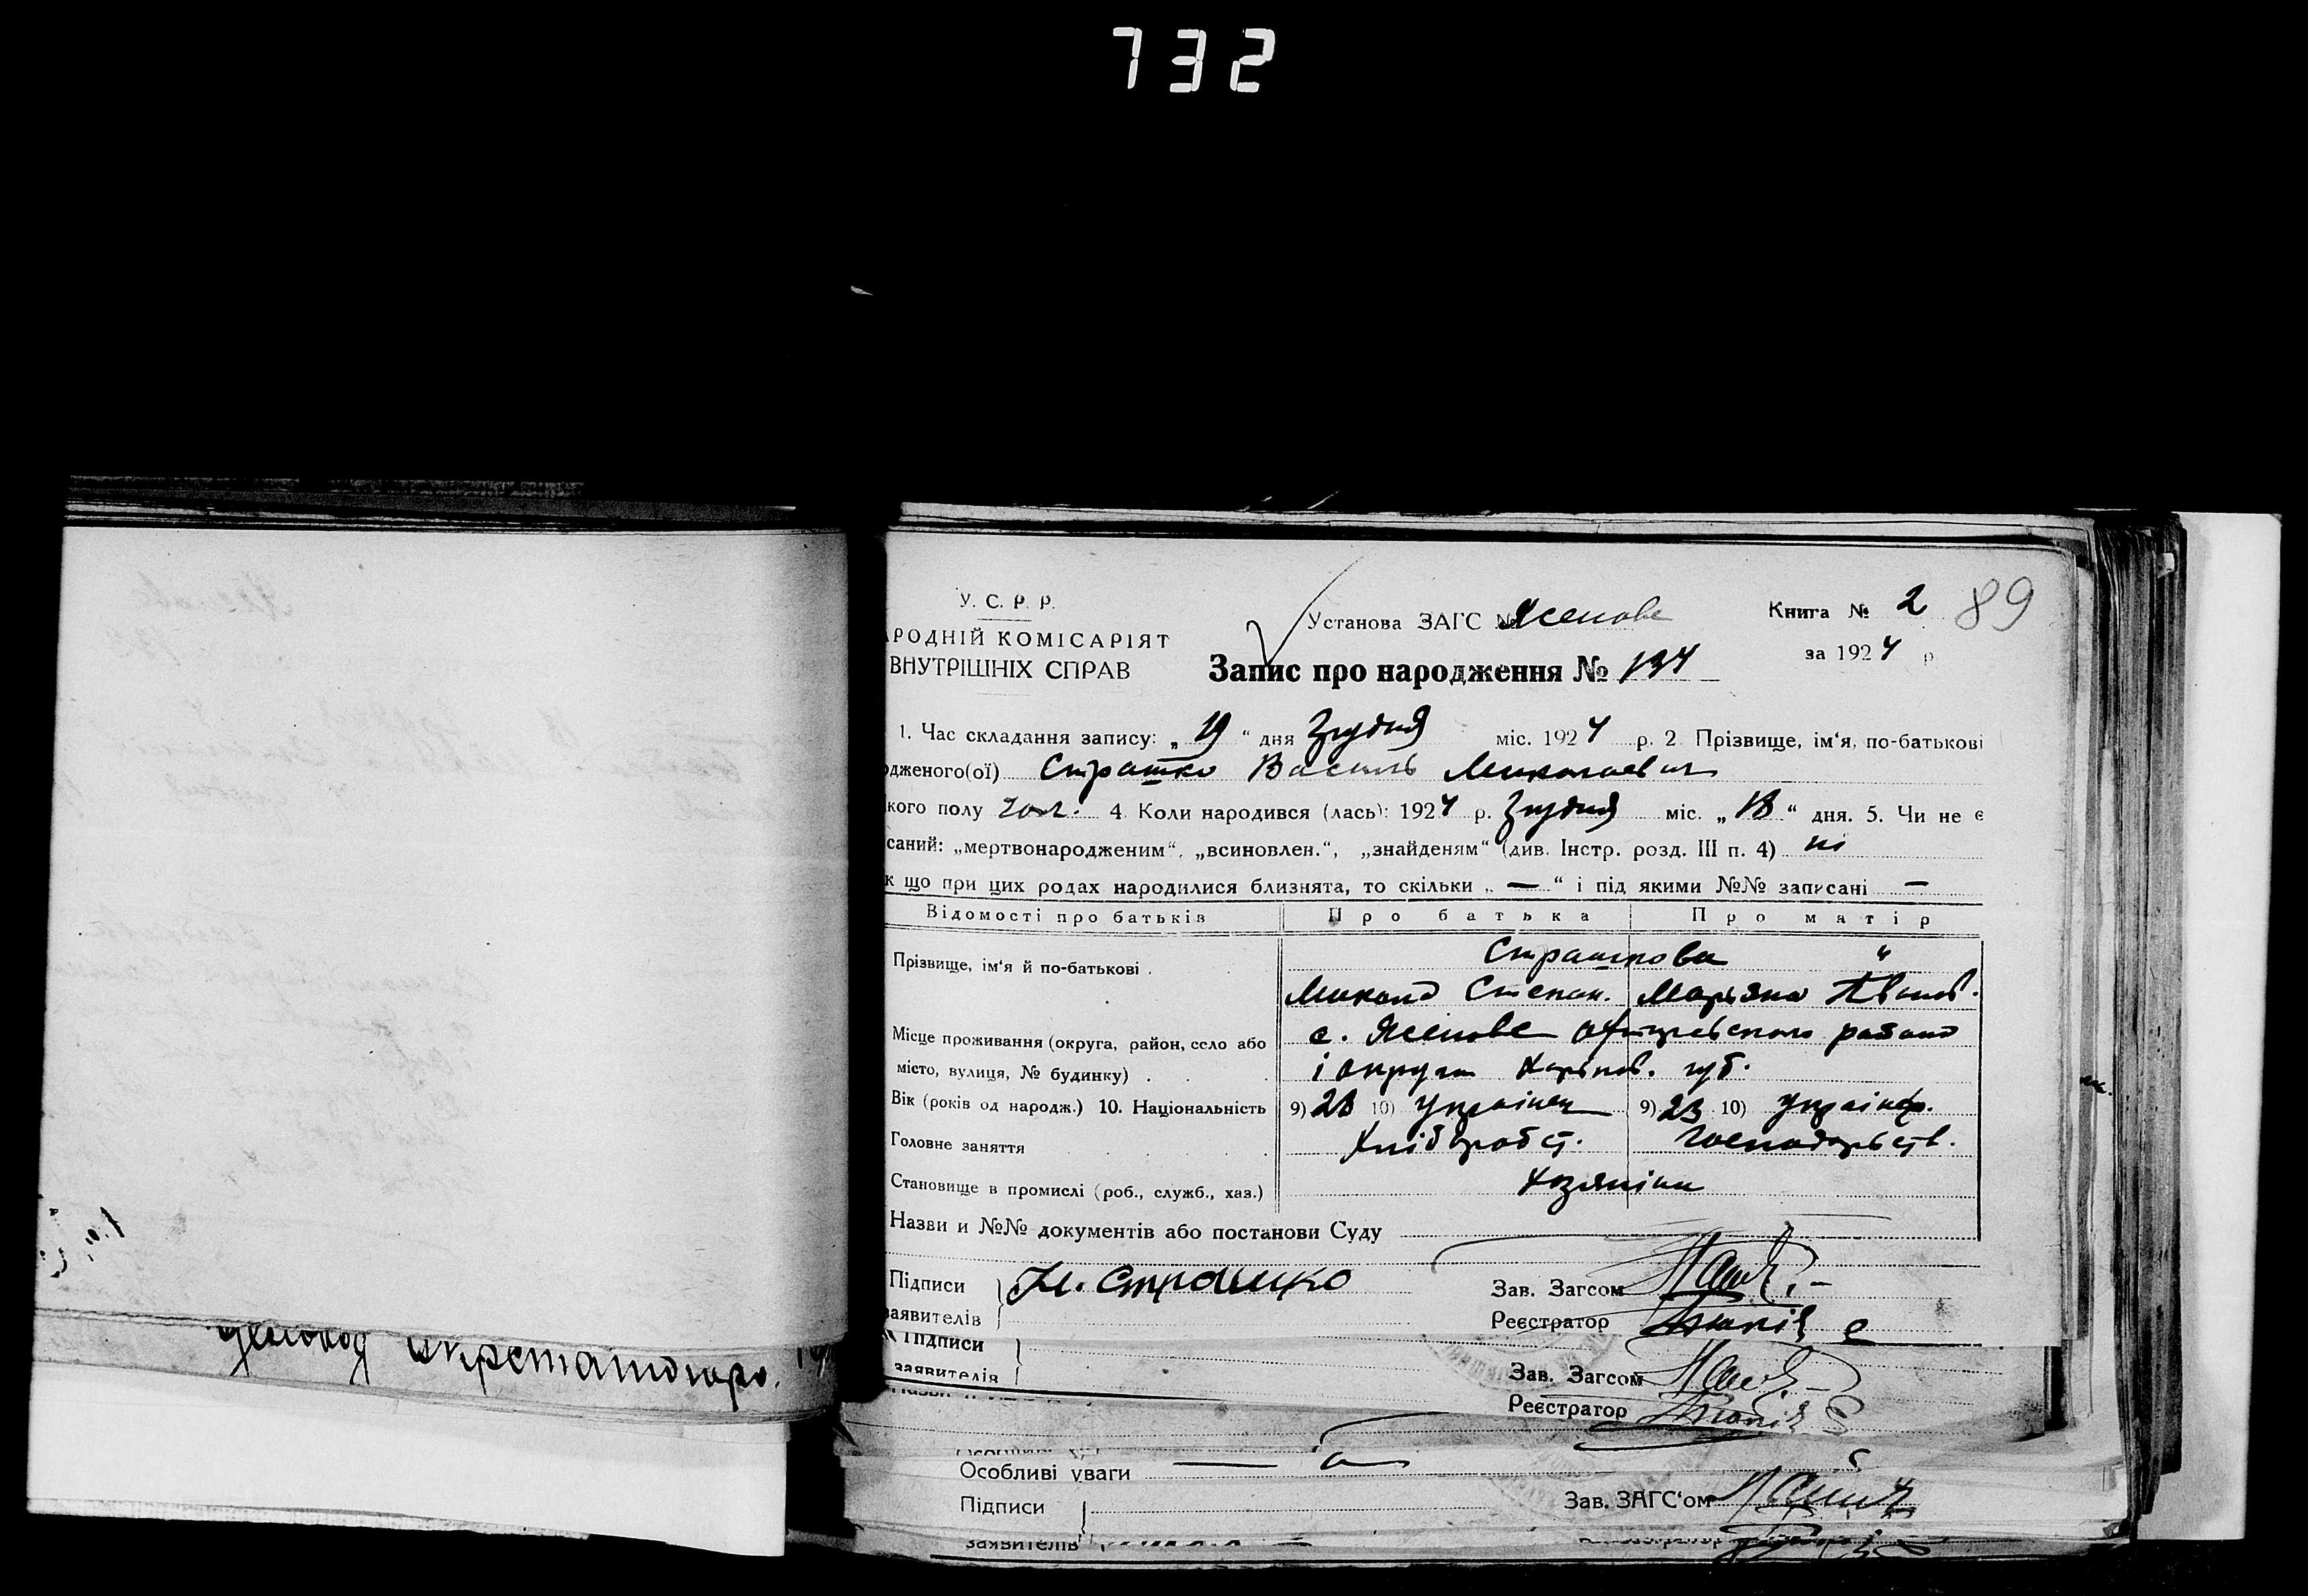 732
У. С. Р. Р.
РОДНІЙ КОМІСАРІЯТ
ВНУТРІШНІХ СПРАВ
Установа ЗАГС № Ясенове
Книга № 2
89
за 1924 р
Запис про народження № 134
1. Час складання запису: „ 19 “ дня Грудня міс. 1924 р. 2. Прізвище, ім‘я, по-батькові
дженого(ої) Страшко Василь Миколаевич
кого полу чол. 4. Коли народився (лась): 1924 р. Грудня міс. „ 18 “ дня. 5. Чи не є
саний: „мертвонародженим“, „всиновлен.“, „знайденям“ (див. Інстр. розд. III п. 4) ні
к що при цих родах народилися близнята, то скільки „ — “ і під якими №№ записані —
Відомості про батьків Про батька Про матір
Прізвище, ім‘я й по-батькові . Страшкови "
Микола Степан. Марьяна Іванов.
Місце проживання (округа, район, село або с. Ясенове Охтирсвского района
місто, вулиця, № будинку) . і округи Харьков. губ.
Вік (років од народж.) 10. Національність 9) 28 10) Українец 9) 23 10) Українф.
Головне заняття Хліборобст. Господарьств.
Становище в промислі (роб., служб., хаз.) Хозяніни
Назви и №№ документів або постанови Суду
Підписи Н. Страшко Зав. Загсом
аявителів Реєстратор
Підписи
заявителів Зав. Загсом
Реєстратор
Особливі уваги
Підписи Зав. ЗАГС‘ом
заявителів